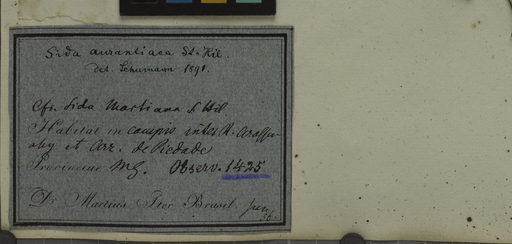 Sida aurantiaca St. Hil.
det. Schumann 1891.
Cfr. Sida Martiana St Hil
Habitat in campis inter R.
et Arr. de Piedade
Provinciae MG. Observ. 1425
Dr. Martius Iter Brasil.